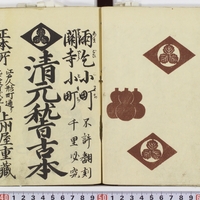 雨乞小町
不許翻刻
関寺小町
千里必究
清元稽古本
正本所
上州屋重蔵